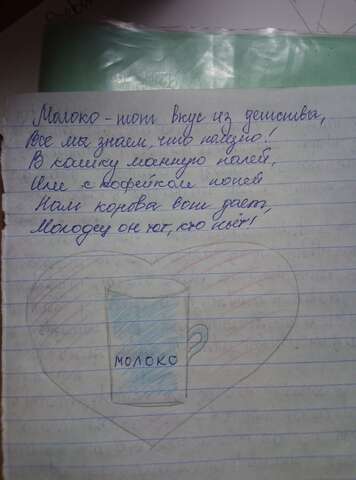 Молоко - тот вкус из детства,
Все мы знаем, что полезно!
В кашку манную налей,
Или с кофейком попей
Нам корова вот даёт,
Молодец он тот, кто пьёт!
МОЛОКО